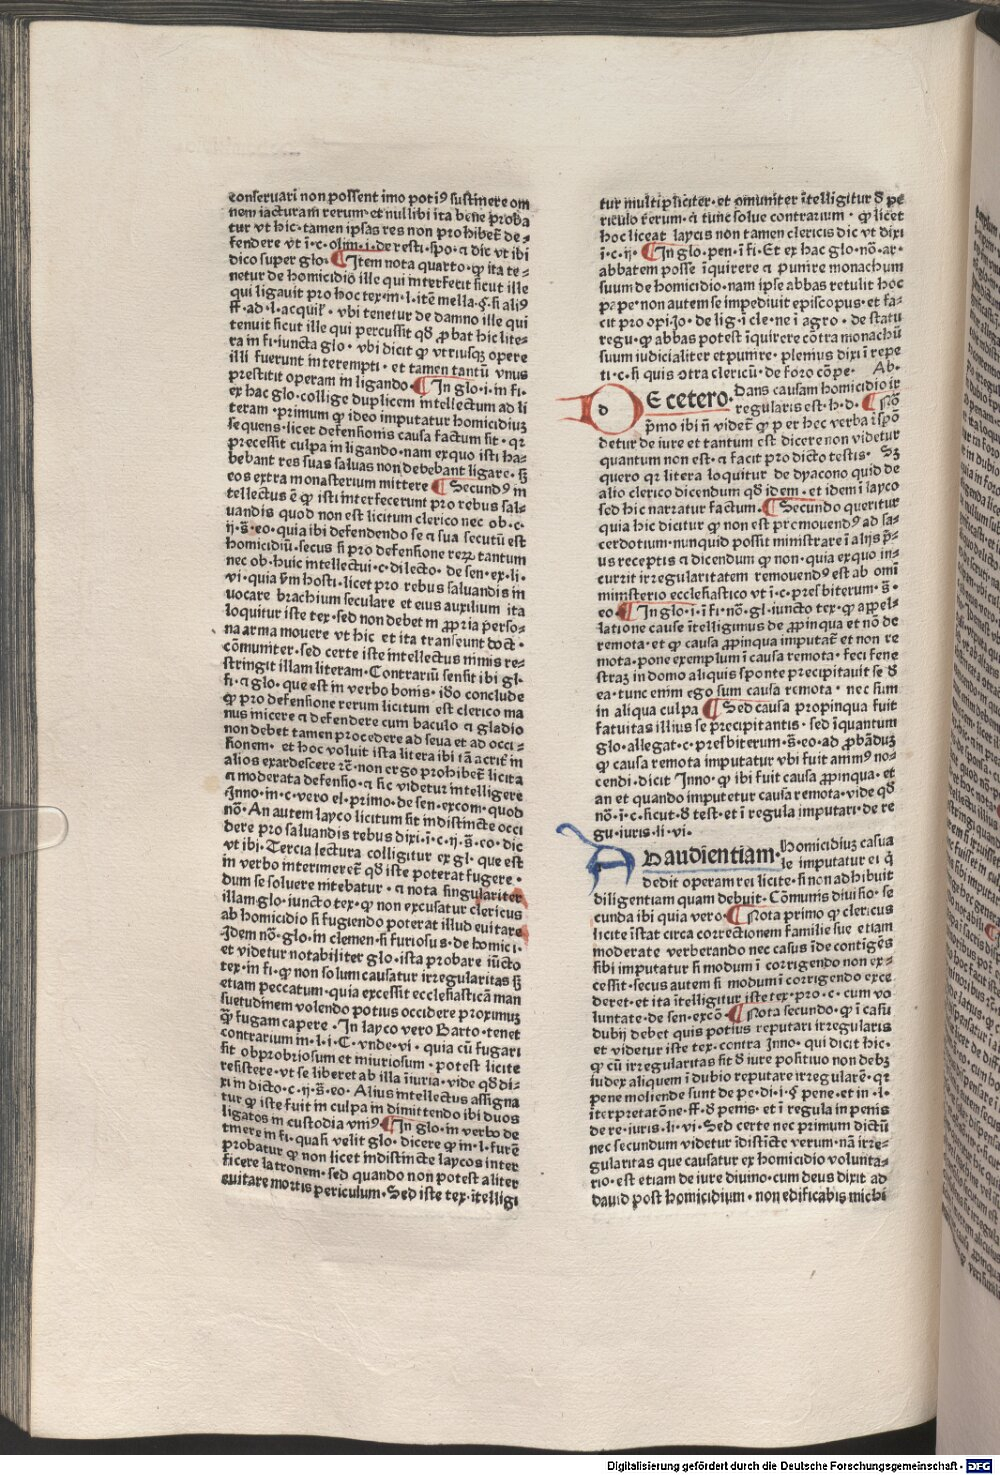 conseruari non possent imo poti⁹ sustinere om
nem iacturam rerum·et nullibi ita bene proba
tur vt hic·tamen ipsas res non prohibet̃ de⸗
fendere vt ĩ·c·olim·i·de resti·spo·⁊ dic vt ibi
dico super glo· ¶ Item nota quarto·ꝙ ita te⸗
netur de homicidio ille qui interfecit sicut ille
qui ligauit pro hoc tex·in·l·itẽ mella·§·si ali⁹
ff·ad·l·acquil̃· vbi tenetur de damno ille qui
tenuit sicut ille qui percussit qđ ꝓbat hic lite⸗
ra in fi·iuncta glo· vbi dicit ꝙ vtriusqꝫ opere
illi fuerunt interempti· et tamen tantũ vnus
prestitit operam in ligando· ¶ In glo·i·in fi·
ex hac glo·collige duplicem intellectum ad li
teram· primum ꝙ ideo imputatur homicidiuꝫ
sequens·licet defensionis causa factum sit· qꝛ
precessit culpa in ligando·nam exquo isti ha⸗
bebant res suas saluas non debebant ligare·sꝫ
eos extra monasterium mittere ¶ Secund⁹ in
tellectus ẽ ꝙ isti interfecerunt pro rebus sal⸗
uandis quod non est licitum clerico nec ob·c·
ij·s̃·eo·quia ibi defendendo se ⁊ sua secutũ est
homicidiũ·secus si pro defensione reꝝ tantum
nec ob·huic intellectui·c·dilecto· de sen·ex·li·
vi·quia vim hosti·licet pro rebus saluandis in
uocare brachium seculare et eius auxilium ita
loquitur iste tex·sed non debet in ꝓpria perso⸗
na arma mouere vt hic et ita transeunt doct·
cõmuniter·sed certe iste intellectus nimis re⸗
stringit illam literam·Contrariũ sensit ibi gl·
fi·⁊ glo·que est in verbo bonis·iđo conclude
ꝙ pro defensione rerum licitum est clerico ma
nus inicere ⁊ defendere cum baculo ⁊ gladio
non debet tamen procedere ad seua et ad occi⸗
sionem· et hoc voluit ista litera ibi iã acrit̃ in
alios exardescere ⁊c̃·non ergo prohibet̃ licita
⁊ moderata defensio·⁊ sic videtur intelligere
Inno·in·c·vero el·primo·de sen·excom·quod
nõ·An autem layco licitum sit indistincte occi
dere pro saluandis rebus dixi·ĩ·c·ij·s̃·eo·dic
vt ibi·Tercia lectura colligitur ex gl·que est
in verbo interimeret̃ qđ iste poterat fugere·
dum se soluere nitebatur·⁊ nota singulariter
illam glo·iuncto tex·ꝙ non excusatur clericus
ab homicidio si fugiendo poterat illud euitare
Idem nõ·glo·in clemen·si furiosus·de homici·
et videtur notabiliter glo·ista probare iũcto
tex·in fi·ꝙ non solum causatur irregularitas sꝫ
etiam peccatum·quia excessit ecclesiasticã man
suetudinem volendo potius occidere proximuꝫ
ꝙ̃ fugam capere· In layco vero Barto·tenet
contrarium in·l·i·C·vnde·vi· quia cũ fugari
sit obprobriosum et iniuriosum· potest licite
resistere·vt se liberet ab illa ĩiuria·vide qđ di⸗
xi in dicto·c·ij·s̃·eo· Alius intellectus assigna
tur ꝙ iste fuit in culpa in dimittendo ibi duos
ligatos in custodia vni⁹ ¶ In glo·in verbo de
tinere in fi·quasi velit glo· dicere ꝙ in·l·furẽ
probatur ꝙ non licet indistincte laycos inter
ficere latronem·sed quando non potest aliter
euitare mortis periculum·Sed iste tex·ĩtelligi
tur multipliciter·et cõmuniter ĩtelligitur đ pe
riculo rerum·⁊ tunc solue contrarium· ꝙ licet
hoc liceat laycis non tamen clericis dic vt dixi
ĩ·c·ij· ¶ In glo·pen·ĩ fi·Et ex hac glo·nõ·ar·
abbatem posse ĩquirere ⁊ punire monachum
suum de homicidio·nam ipse abbas retulit hoc
pape·non autem se impediuit episcopus·et fa⸗
cit pro opi·Jo·de lig·ĩ cle·ne ĩ agro·de statu
regu·ꝙ abbas potest ĩquirere cõtra monachũ
suum iudicialiter et punire·plenius dixi ĩ repe
ti·c·si quis ɔtra clericũ·de foro cõpe· Ab·
DE cetero· Dans causam homicidio ir
regularis est·h·d· ¶ Nõ
p̃mo ibi ñ videt̃ ꝙ per hec verba ĩspõ
detur de iure et tantum est dicere non videtur
quantum non est·⁊ facit pro dicto testis· Sꝫ
quero qꝛ litera loquitur de dyacono quid de
alio clerico dicendum qđ idem·et idem ĩ layco
sed hic narratur factum· ¶ Secundo queritur
quia hic dicitur ꝙ non est promouend⁹ ad sa⸗
cerdotium·nunquid possit ministrare ĩ alijs p̃⸗
us receptis ⁊ dicendum ꝙ non·quia exquo in⸗
currit irregularitatem remouend⁹ est ab omĩ
ministerio ecclesiastico vt ĩ·c·presbiterum·s̃·
eo· ¶ In glo·i·ĩ fi·nõ·gl·iuncto tex·ꝙ appel⸗
latione cause ĩtelligimus de ꝓpinqua et nõ de
remota·et ꝙ causa ꝓpinqua imputat̃ et non re
mota·pone exemplum ĩ causa remota· feci fene
straꝫ in domo aliquis sponte precipitauit se đ
ea·tunc enim ego sum causa remota· nec sum
in aliqua culpa ¶ Sed causa propinqua fuit
fatuitas illius se precipitantis· sed ĩquantum
glo·allegat·c·presbiterum·s̃·eo·ad ꝓbãduꝫ
ꝙ causa remota imputatur vbi fuit anim⁹ no⸗
cendi·dicit Inno·ꝙ ibi fuit causa ꝓpinqua·et
an et quando imputetur causa remota·vide qđ
nõ·ĩ·c·sicut·đ test·et ĩ regula imputari·de re
gu·iuris·li·vi·
AD audientiam· Homicidiuꝫ casua
le imputatur ei q̃
dedit operam rei licite·si non adhibuit
diligentiam quam debuit·Cõmunis diuisio·se
cunda ibi quia vero· ¶ Nota primo ꝙ clericus
licite ĩstat circa correctionem familie sue etiam
moderate verberando nec casus ĩde contigẽs
sibi imputatur si modum ĩ corrigendo non ex⸗
cessit·secus autem si modum ĩ corrigendo exce
deret·et ita ĩtelligitur iste tex·pro·c·cum vo
luntate·de sen·excõ· ¶ Nota secundo·ꝙ ĩ casu
dubij debet quis potius reputari irregularis
et videtur iste tex·contra Inno·qui dicit hic·
ꝙ cũ irregularitas sit đ iure positiuo non debꝫ
iudex aliquem ĩ dubio reputare irregularẽ·qꝛ
pene moliende sunt de pe·di·i·§ pene·et in·l·
ĩterpretatõne·ff·đ penis·et ĩ regula in penis
de re·iuris·li·vi·Sed certe nec primum dictũ
nec secundum videtur ĩdistĩcte verum·nã irre⸗
gularitas que causatur ex homicidio volunta⸗
rio·est etiam de iure diuino·cum deus dixit ad
dauid post homicidium·non edificabis michi
Digitalisierung gefördert durch die Deutsche Forschungsgemeinschaft - DFG